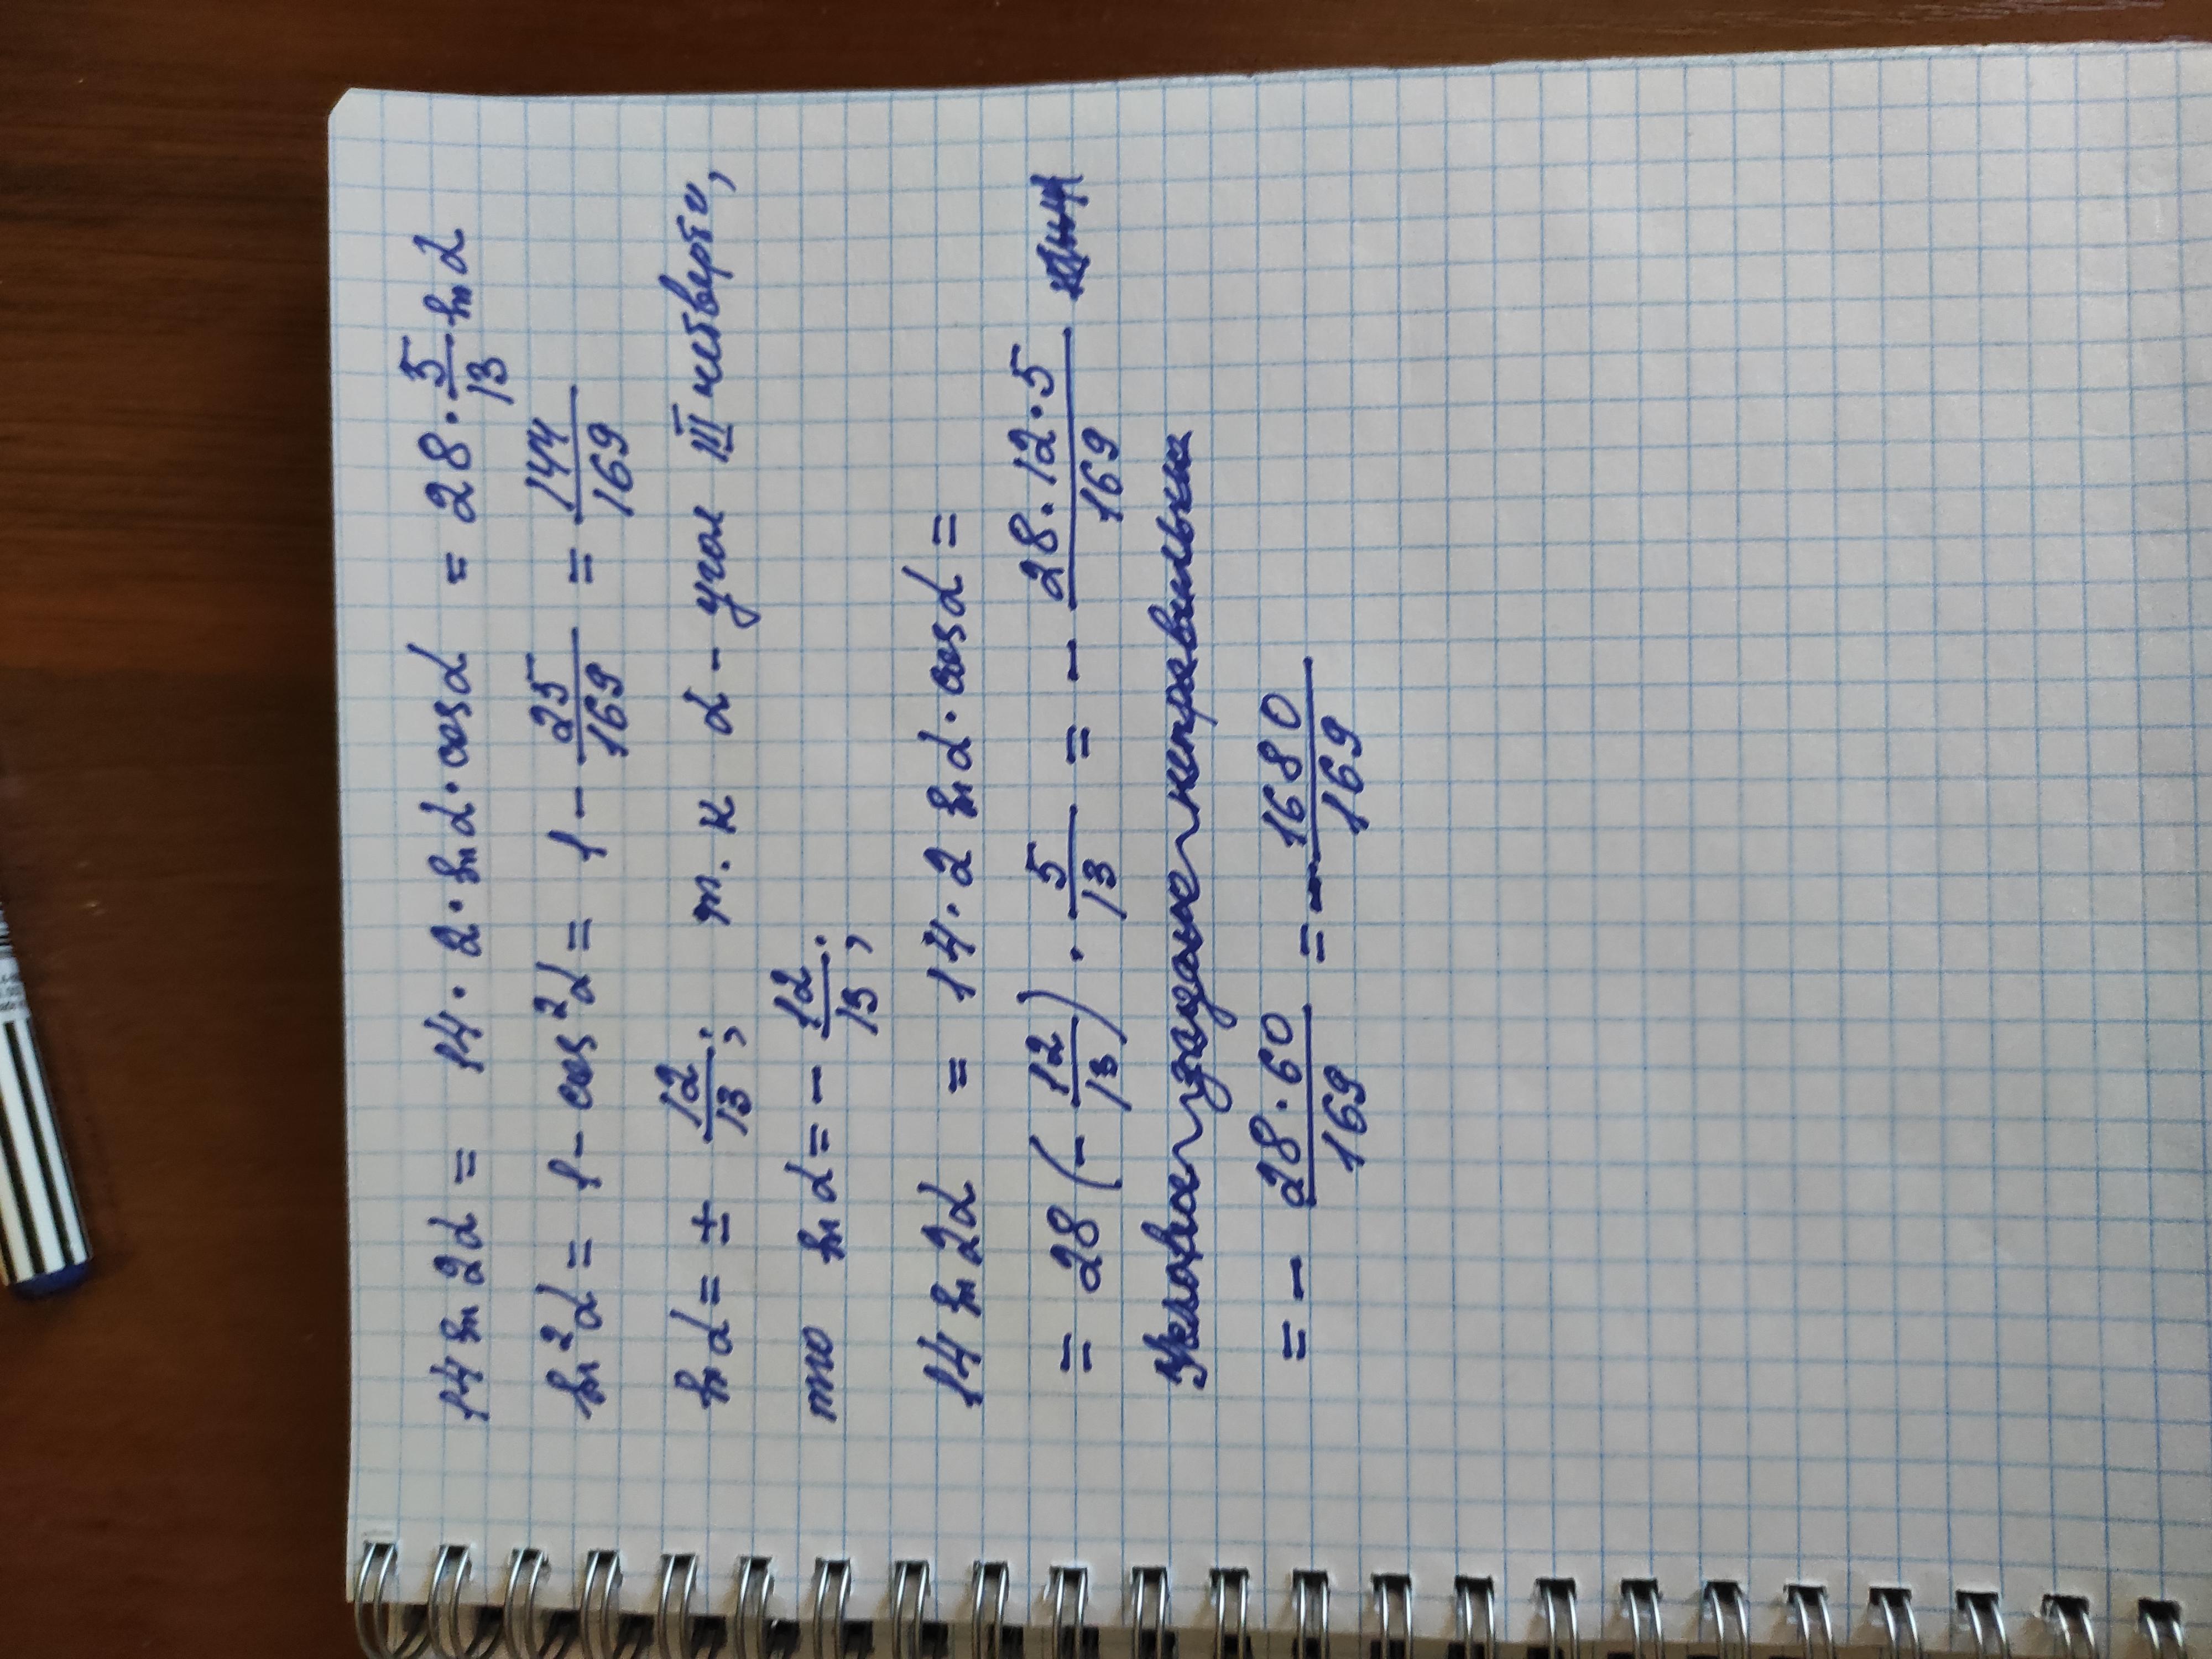 14 sin 2α = 14 · 2 · sin α · cos α = 28 · 5/13 sin α
sin²α = 1 - cos²α = 1 - 25/169 = 144/169
sin α = ± 12/13; т. к α - угол III четверти,
то sin α = - 12/13;
14 sin 2α = 14 · 2 sin α · cos α =
= 28 (- 12/13) · 5/13 = - 28 · 12 · 5/169
Условие задание неправильни
= - 28 · 60/169 = - 1680/169